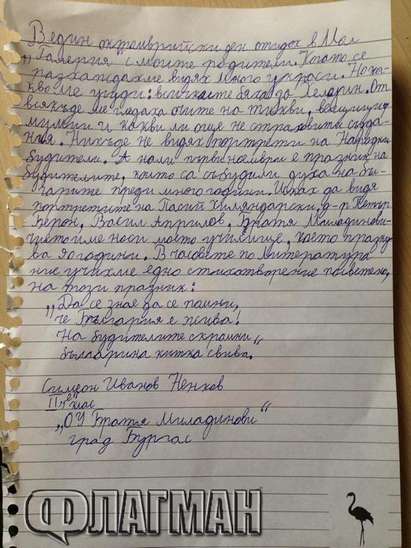 В един октомврийски ден отидох в Мол
„Галерия с моите родители. Когато се
разхождахме видях много украси. Но как-
во ме учуди: всичките бяха за Хелоуин. От
всякъде ме гледаха очите на тикви, вещици,
мумии и какви ли още не страховити създа-
ния. Никъде не видях портрети на Народни
будители. А нали първи ноември е празник на
будителите, които са събудили духа на бъл-
гарите преди много години. Исках да видя
портретите на Паисий Хилендарски, д-р Петър
Берон, Васил Априлов, Братя Миладинови-
чието име носи моето училище, което празну-
ва годините. В часовете по литература
ние учихме едно стихотворение посветено
на този празник:
„Да се знае да се помни,
че България е жива!
На будителите скромни
българина китка свива.“
Симеон Иванов Ненков
II клас
„ОУ Братя Миладинови“
град Бургас
ФЛАГМАН